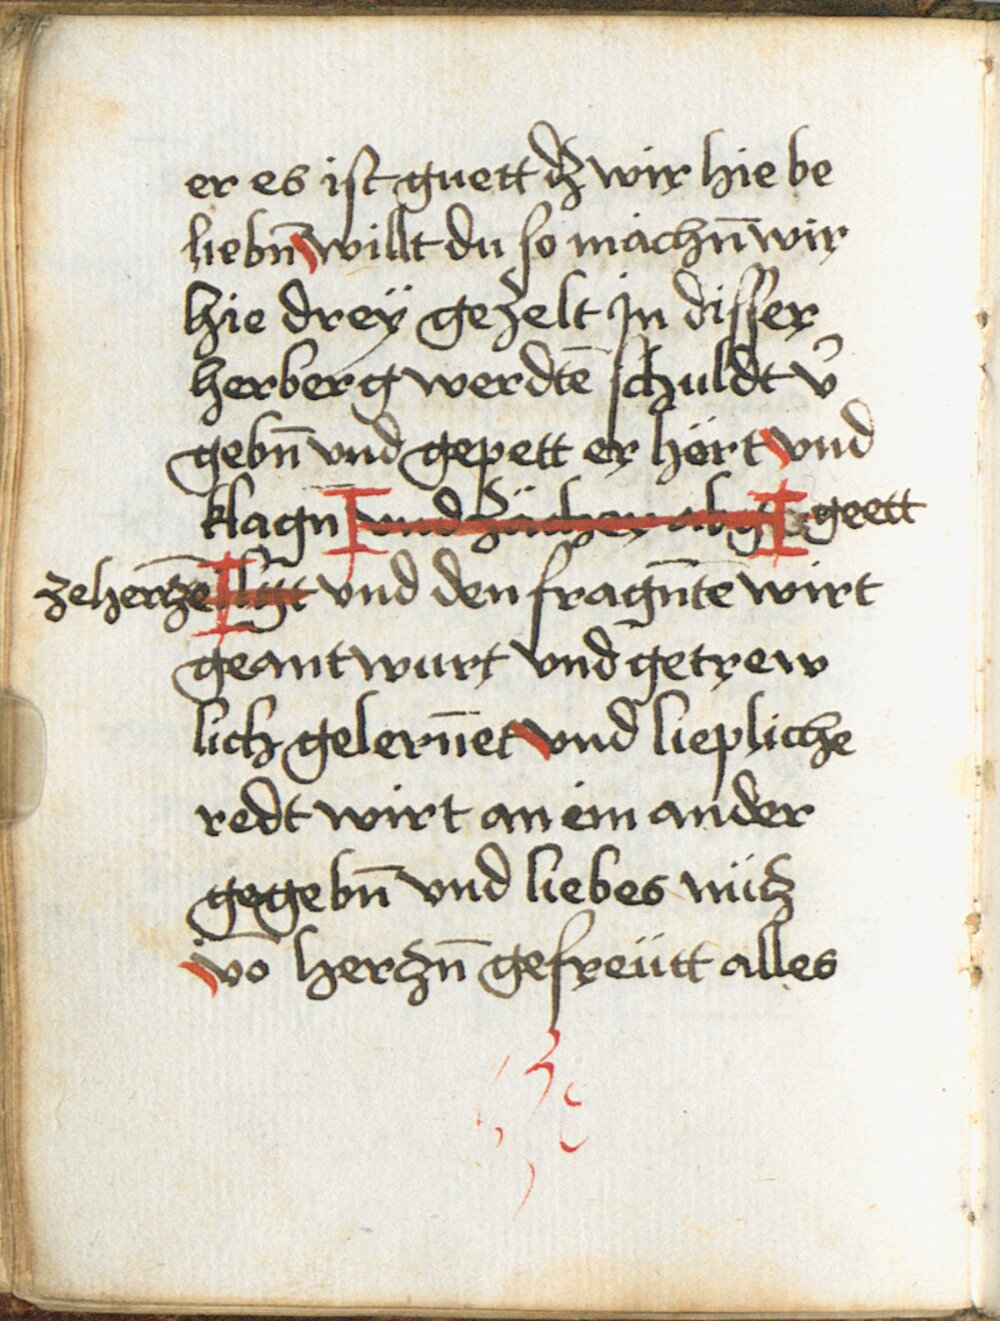 er es ist guett dz wir hie be
liebn̄ willt du so machn̄ wir
hie dreÿ gezelt Jn disser
herberg werdtē schuldt v̾
gebn̄ vnd gepett er hört vnd
klagn vnd zächer abge geett
ze hertzē ligt vnd den fragn̄tē wirt
geantwurt vnd getrew
lich gelern̄et vnd liepliche
redt wirt an ein ander
gegebn̄ vnd liebes
vō herzn̄ gefreütt alles